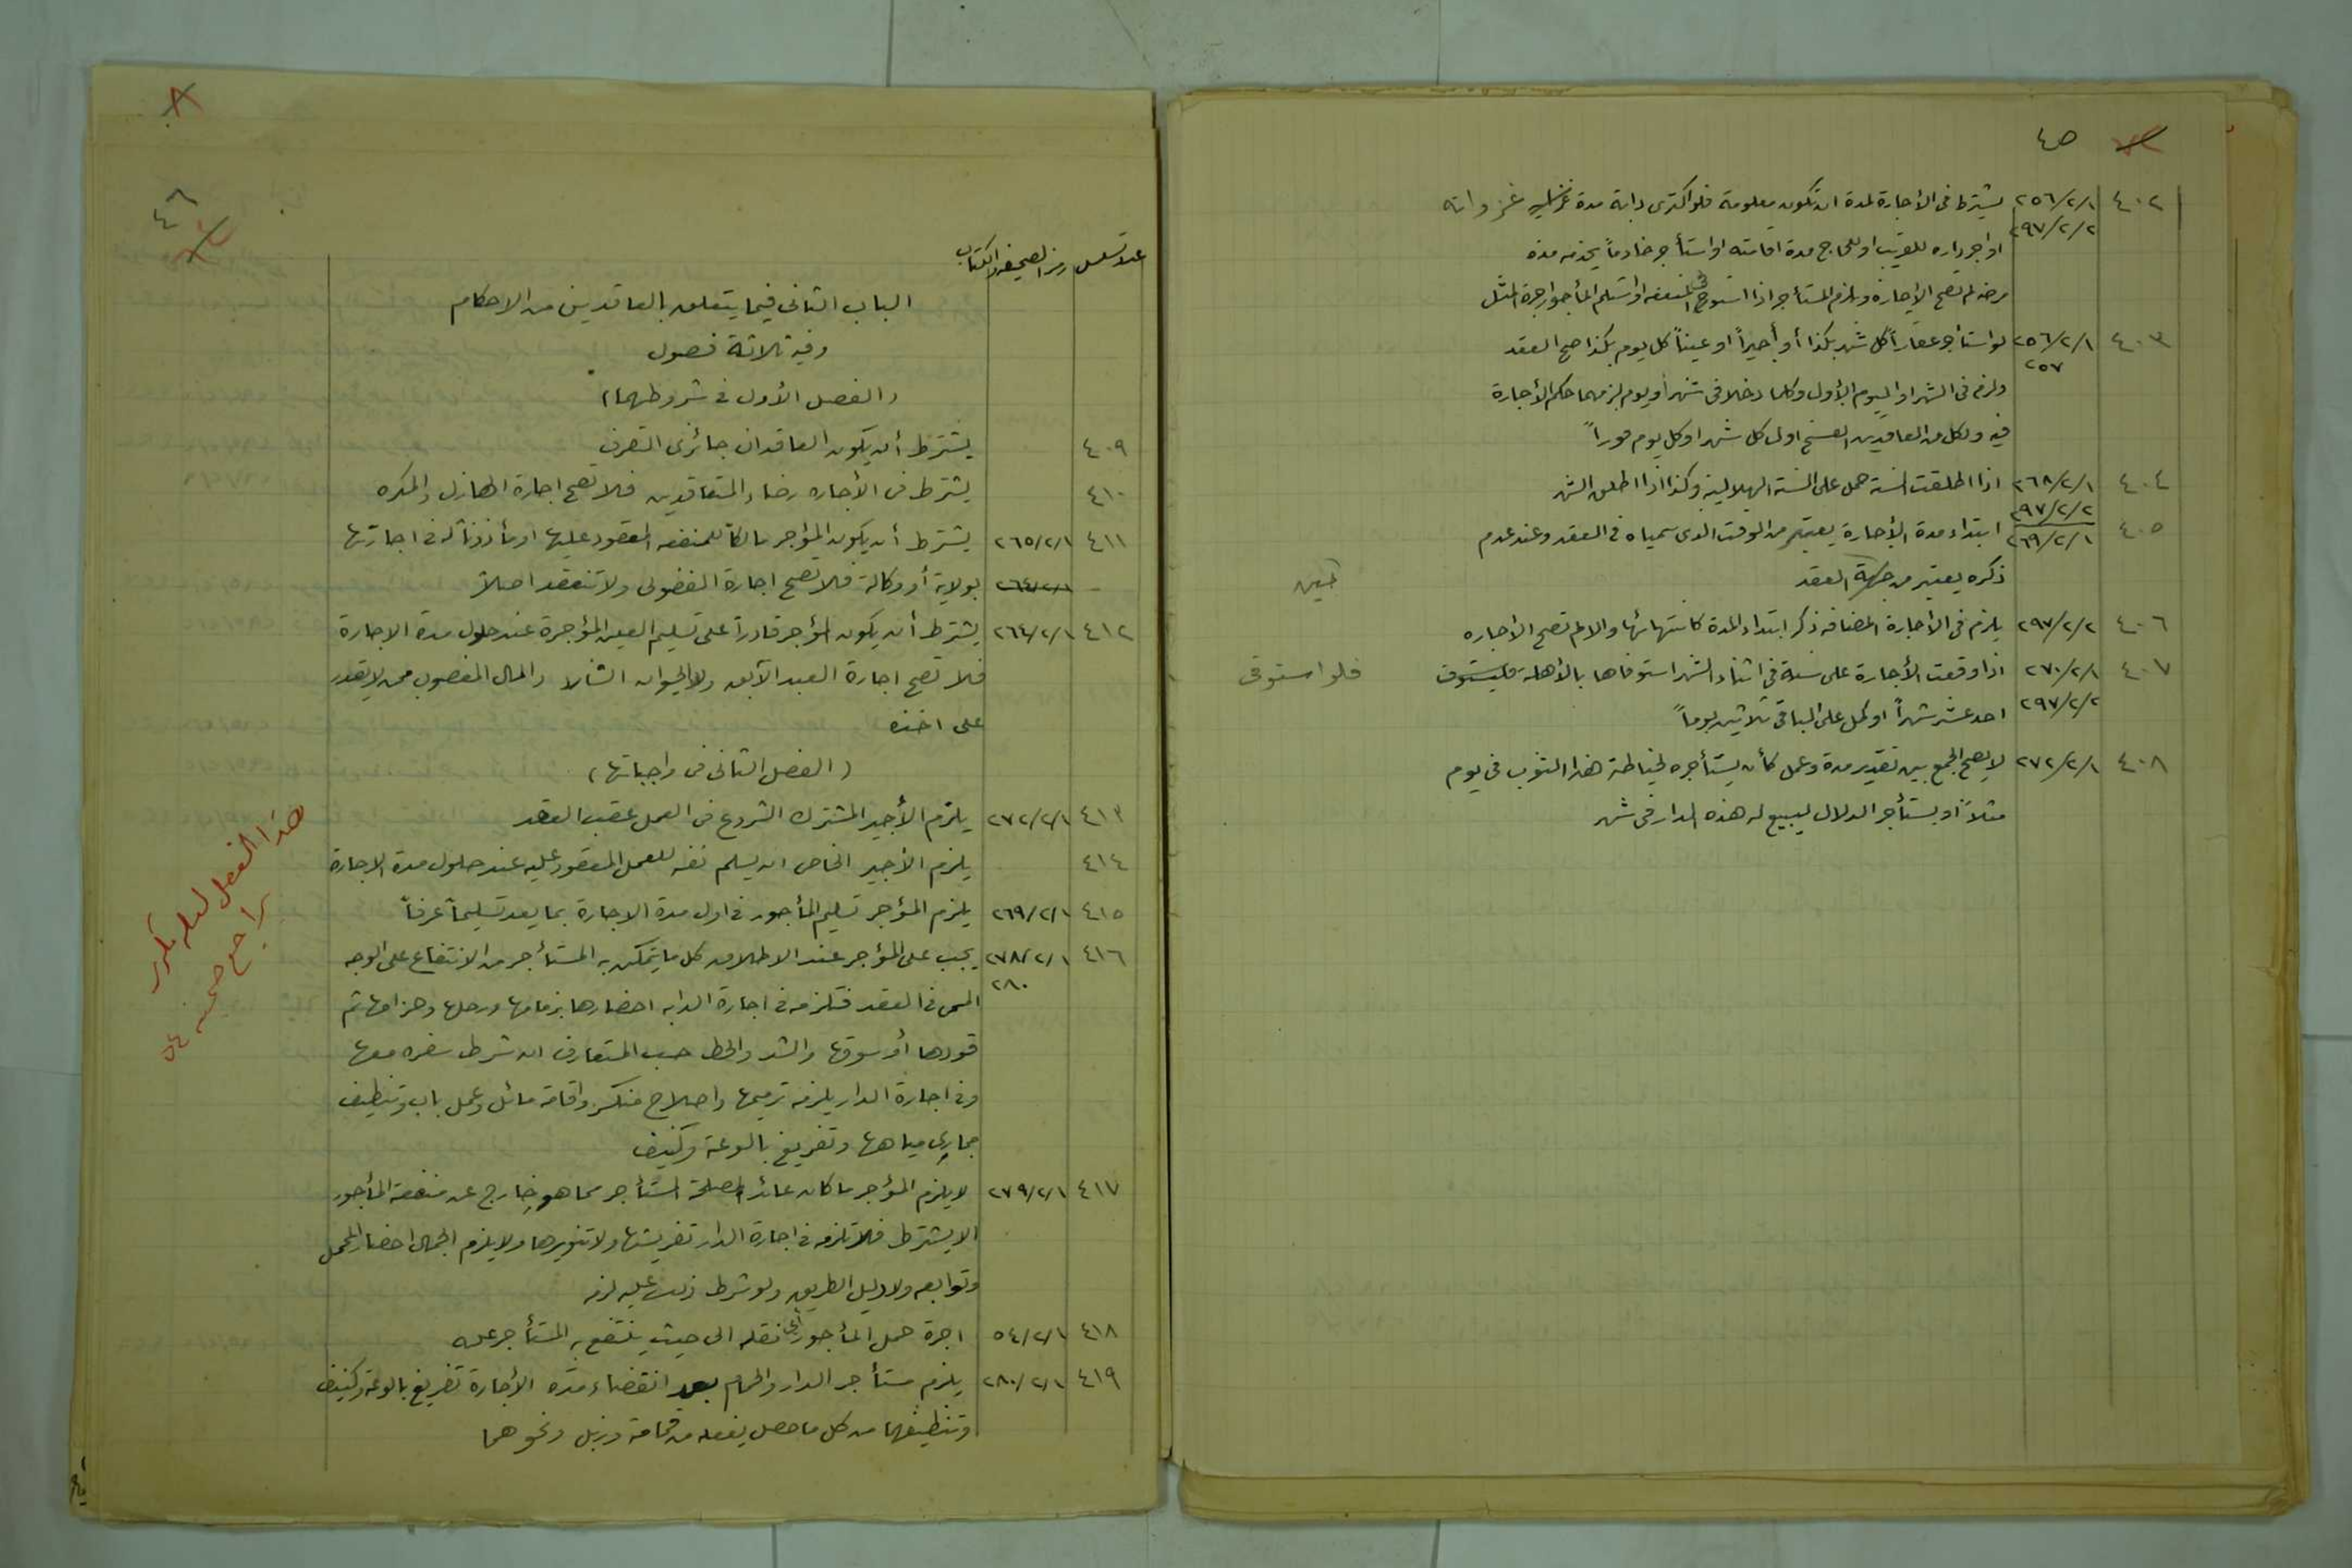 ٤٥
٤٠٢ ٢٥٦/٢/١ يشترط في الأجارة لمدة ان تكون معلومة فلو اكترى دابة مدة غزواته
٢٩٧/٢/٢ او اجر داره للغريب او للحاج مدة اقامته او استأجر خادماً يخدمه مدة
مرضه لم تصح الإجارة ويلزم المستأجر اذا استوفى المنفعه او استلم المأجور اجرة المثل
٤٠٣ ٢٥٦/٢/١ لو استأجر عقاراً كل شهر بكذا أو أجيراً او عيناً كل يوم بكذا صح العقد
٢٥٧ ولزم في الشهر او اليوم الأول وكلما دخلا في شهر او يوم لزمهما حكم الأجارة
فيه ولكل من العاقدين الفسخ اول كل شهر او كل يوم فوراً
٤٠٤ ٢٦٨/٢/١ اذا اطلقت السنة حمل على السنة الهلالية وكذا اذا اطلق الشهر
٢٩٧/٢/٢
٤٠٥ ٢٦٩/٢/١ ابتداء مدة الأجارة يعتبر من الوقت الذى سمياه في العقد وعند عدم
ذكره يعتبر من جهة العقد حين
٤٠٦ ٢٩٧/٢/٢ يلزم في الأجارة المضافه ذكر ابتداء المدة كانتهائها والا لم تصح الاجاره
٤٠٧ ٢٧٠/٢/١ اذا وقعت الأجارة على سنة في اثناء الشهر استوفاها بالأهلة فليستوف فلو استوفى
٢٩٧/٢/٢ احد عشر شهراً او كمل على الباقي ثلاثين يوماً
٤٠٨ ٢٧٢/٢/١ لا يصح الجمع بين تقدير مدة وعمل كأن يستأجره لخياطة هذا الثوب في يوم
مثلاً او يستأجر الدلال ليبيع له هذه الدار في شهر
٨
٤٦
عدد تسلسل رمز الصحيفة والكتاب
الباب الثانى فيما يتعلق بالعاقدين من الاحكام
وفيه ثلاثة فصول
(الفصل الأول في شروطهما)
٤٠٩ يشترط أن يكون العاقدان جائزى التصرف
٤١٠ يشترط في الأجاره رضاء المتعاقدين فلا تصح اجارة الهازل والمكره
٤١١ ٢٦٥/٢/١ يشترط أن يكون المؤاجر مالكاً للمنفعه المعقود عليها او مأذوناً له في اجارتها
٢٦٤/٢/١ بولاية أو وكالة فلا تصح اجارة الفضولى ولا تنعقد اصلاً
٤١٢ ٢٦٤/٢/١ يشترط أن يكون المؤجر قادراً على تسليم العين المؤجرة عند حلول مدة الاجارة
فلا تصح اجارة العبد الآبق ولا الحيوان الشارد والمال المغصوب ممن لا يقدر
على اخذه
(الفصل الثانى في واجباتها)
٤١٣ ٢٧٢/٢/١ يلزم الأجير المشترك الشروع في العمل عقب العقد
٤١٤ يلزم الأجير الخاص ان يسلم نفسه للعمل المعقود عليه عند حلول مدة الاجارة
٤١٥ ٢٦٩/٢/١ يلزم المؤجر تسليم المأجور في اول مدة الاجارة بما يعد تسليماً عرفاً
٤١٦ ٢٧٨/٢/١ يجب على المؤجر عند الاطلاق كل ما يتمكن به المستأجر من الانتفاع على الوجه
٢٨٠ المسمى في العقد فتلزمه في اجارة الدابه احضارها بزمامها ورحلها وحزامها ثم
قودها أو سوقها والشد والحط حسب المتعارف ان شرط سفره معها
وفي اجارة الدار يلزمه ترميمها واصلاح منكسر واقامة مائل وعمل باب وتنظيف
مجاري مياهها وتفريغ بالوعة وكنيف
٤١٧ ٢٧٩/٢/١ لا يلزم المؤجر ما كان عائداً لمصلحة المستأجر مما هو خارج عن منفعة المأجور
الا بشرط فلا تلزمه في اجارة الدار تفريشها ولا تنويرها ولا يلزم الجمال احضار المحمل
وتوابعه ولا دليل الطريق ولو شرط ذلك عليه لزمه
٤١٨ ٥٤/٢/١ اجرة حمل المأجور أى نقله الى حيث ينتفع به المستأجر عليه
٤١٩ ٢٨٠/٢/١ يلزم مستأجر الدار والحمام بعد انقضاء مدة الأجارة تفريغ بالوعة وكنيف
وتنظيفهما من كل ما حصل بفعله من قمامة وزبل ونحوهما
هذا الفصل لعله تكرر
يراجع صحيفه ٥٤